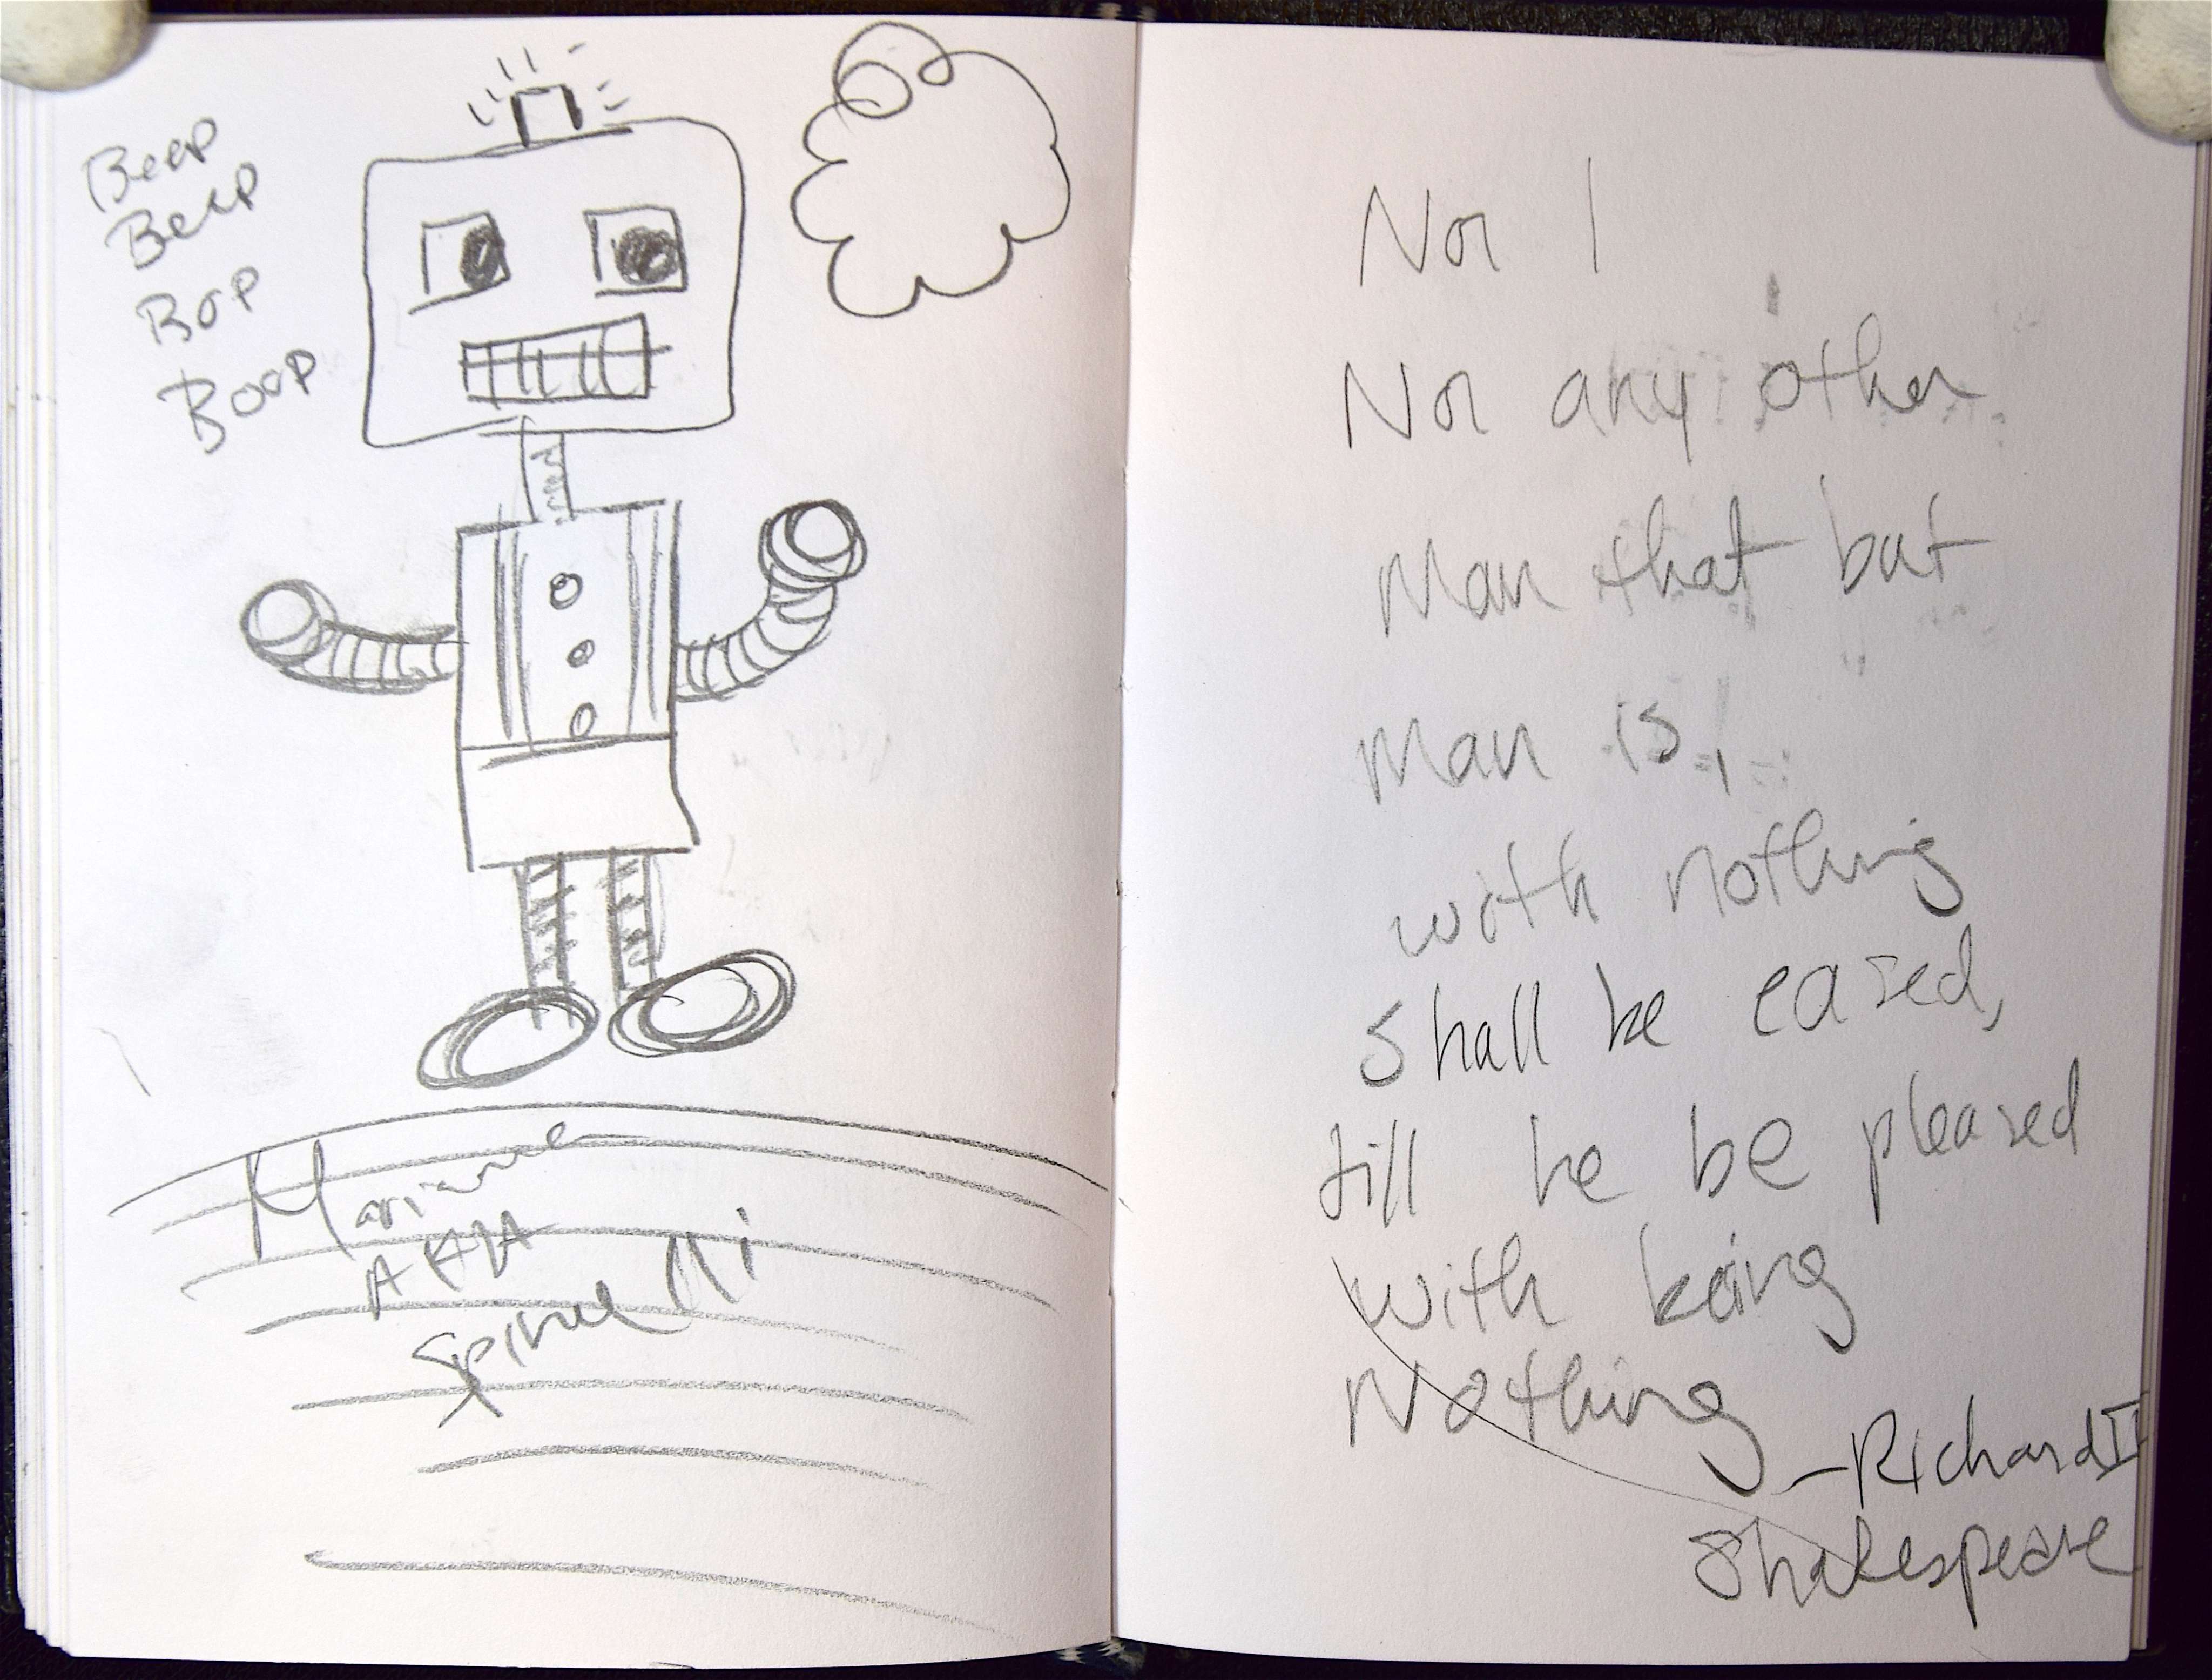 Beep
Beep
Bop
Boop
Marianne
AKA
Spinelli
Nor I
Nor any other
Man that but
Man is,
with nothing
shall be eased,
till he be pleased
with being
Nothing
—Richard II
Shakespeare